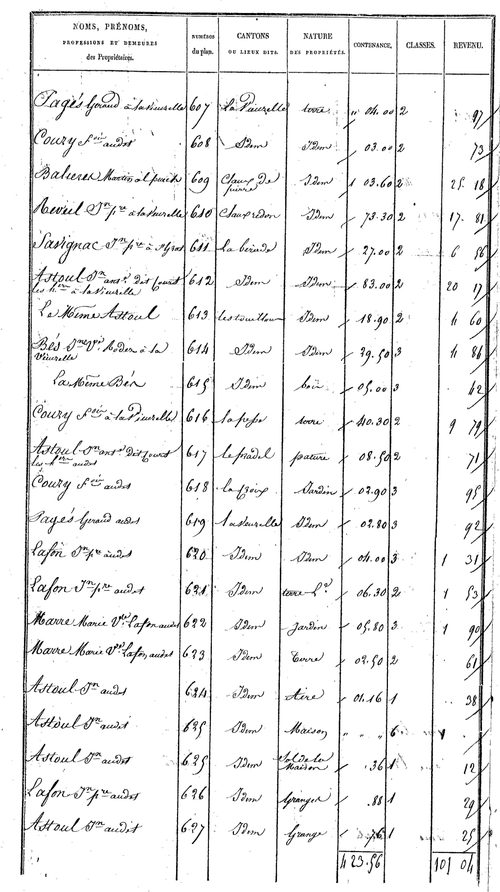 NOMS, PRÉNOMS, PROFESSIONS ET DEMEURES des Propriétaires. NUMÉROS du plan. CANTONS OU LIEUX DITS. NATURE DES PROPRIÉTÉS. CONTENANCE. CLASSES. REVENU.
Pagés Geraud à la Vieurelle 607 La Vieurelle terre " 04.00 2 97
Coury audet 608 Idem Idem 03.00 2 73
Balieres Martin 609 Claux de Idem 1 03.60 2 25 18
Reveil Jn pre à la Vieurelle 610 Claux redon Idem 73.30 2 17. 81
Savignac Jn pre à 611 la berade Idem 27.00 2 6 56
Astoul Jn dit Couret
les hers à la Vieurelle 612 Idem Idem 83.00 2 20 17
Le Même Astoul 613 Idem 18.90 2 4 60
Bés Vve à la
Vieurelle 614 Idem Idem 39.50 3 4 86
La Même Bés 615 Idem bois 05.00 3 42
Coury à la Vieurelle 616 terre 40.30 2 9 79
Astoul Jn dit Couret
les hers audet 617 le pradel pature 08.50 2 71
Coury audet 618 la Croix Jardin 02.90 3 95
Pagés Geraud audet 619 la Vieurelle Idem 02.80 3 92
Lafon Jn pre audet 620 Idem Idem 04.00 3 1 31
Lafon Jn pre audet 621 Idem terre 06.30 2 1 53
Marre Marie Vve Lafon audet 622 Idem Jardin 05.80 3 1 90
Marre Marie Vve Lafon audet 623 Idem Terre 02.50 2 61
Astoul Jn audet 624 Idem Aire 01.16 1 38
Astoul Jn audet 625 Idem Maison " " 6
Astoul Jn audet 625 Idem Sol de la
Maison .36 1 12
Lafon Jn pre audet 626 Idem Grange .88 1 29
Astoul Jn audet 627 Idem Grange .76 1 25
4 23.56 101 04